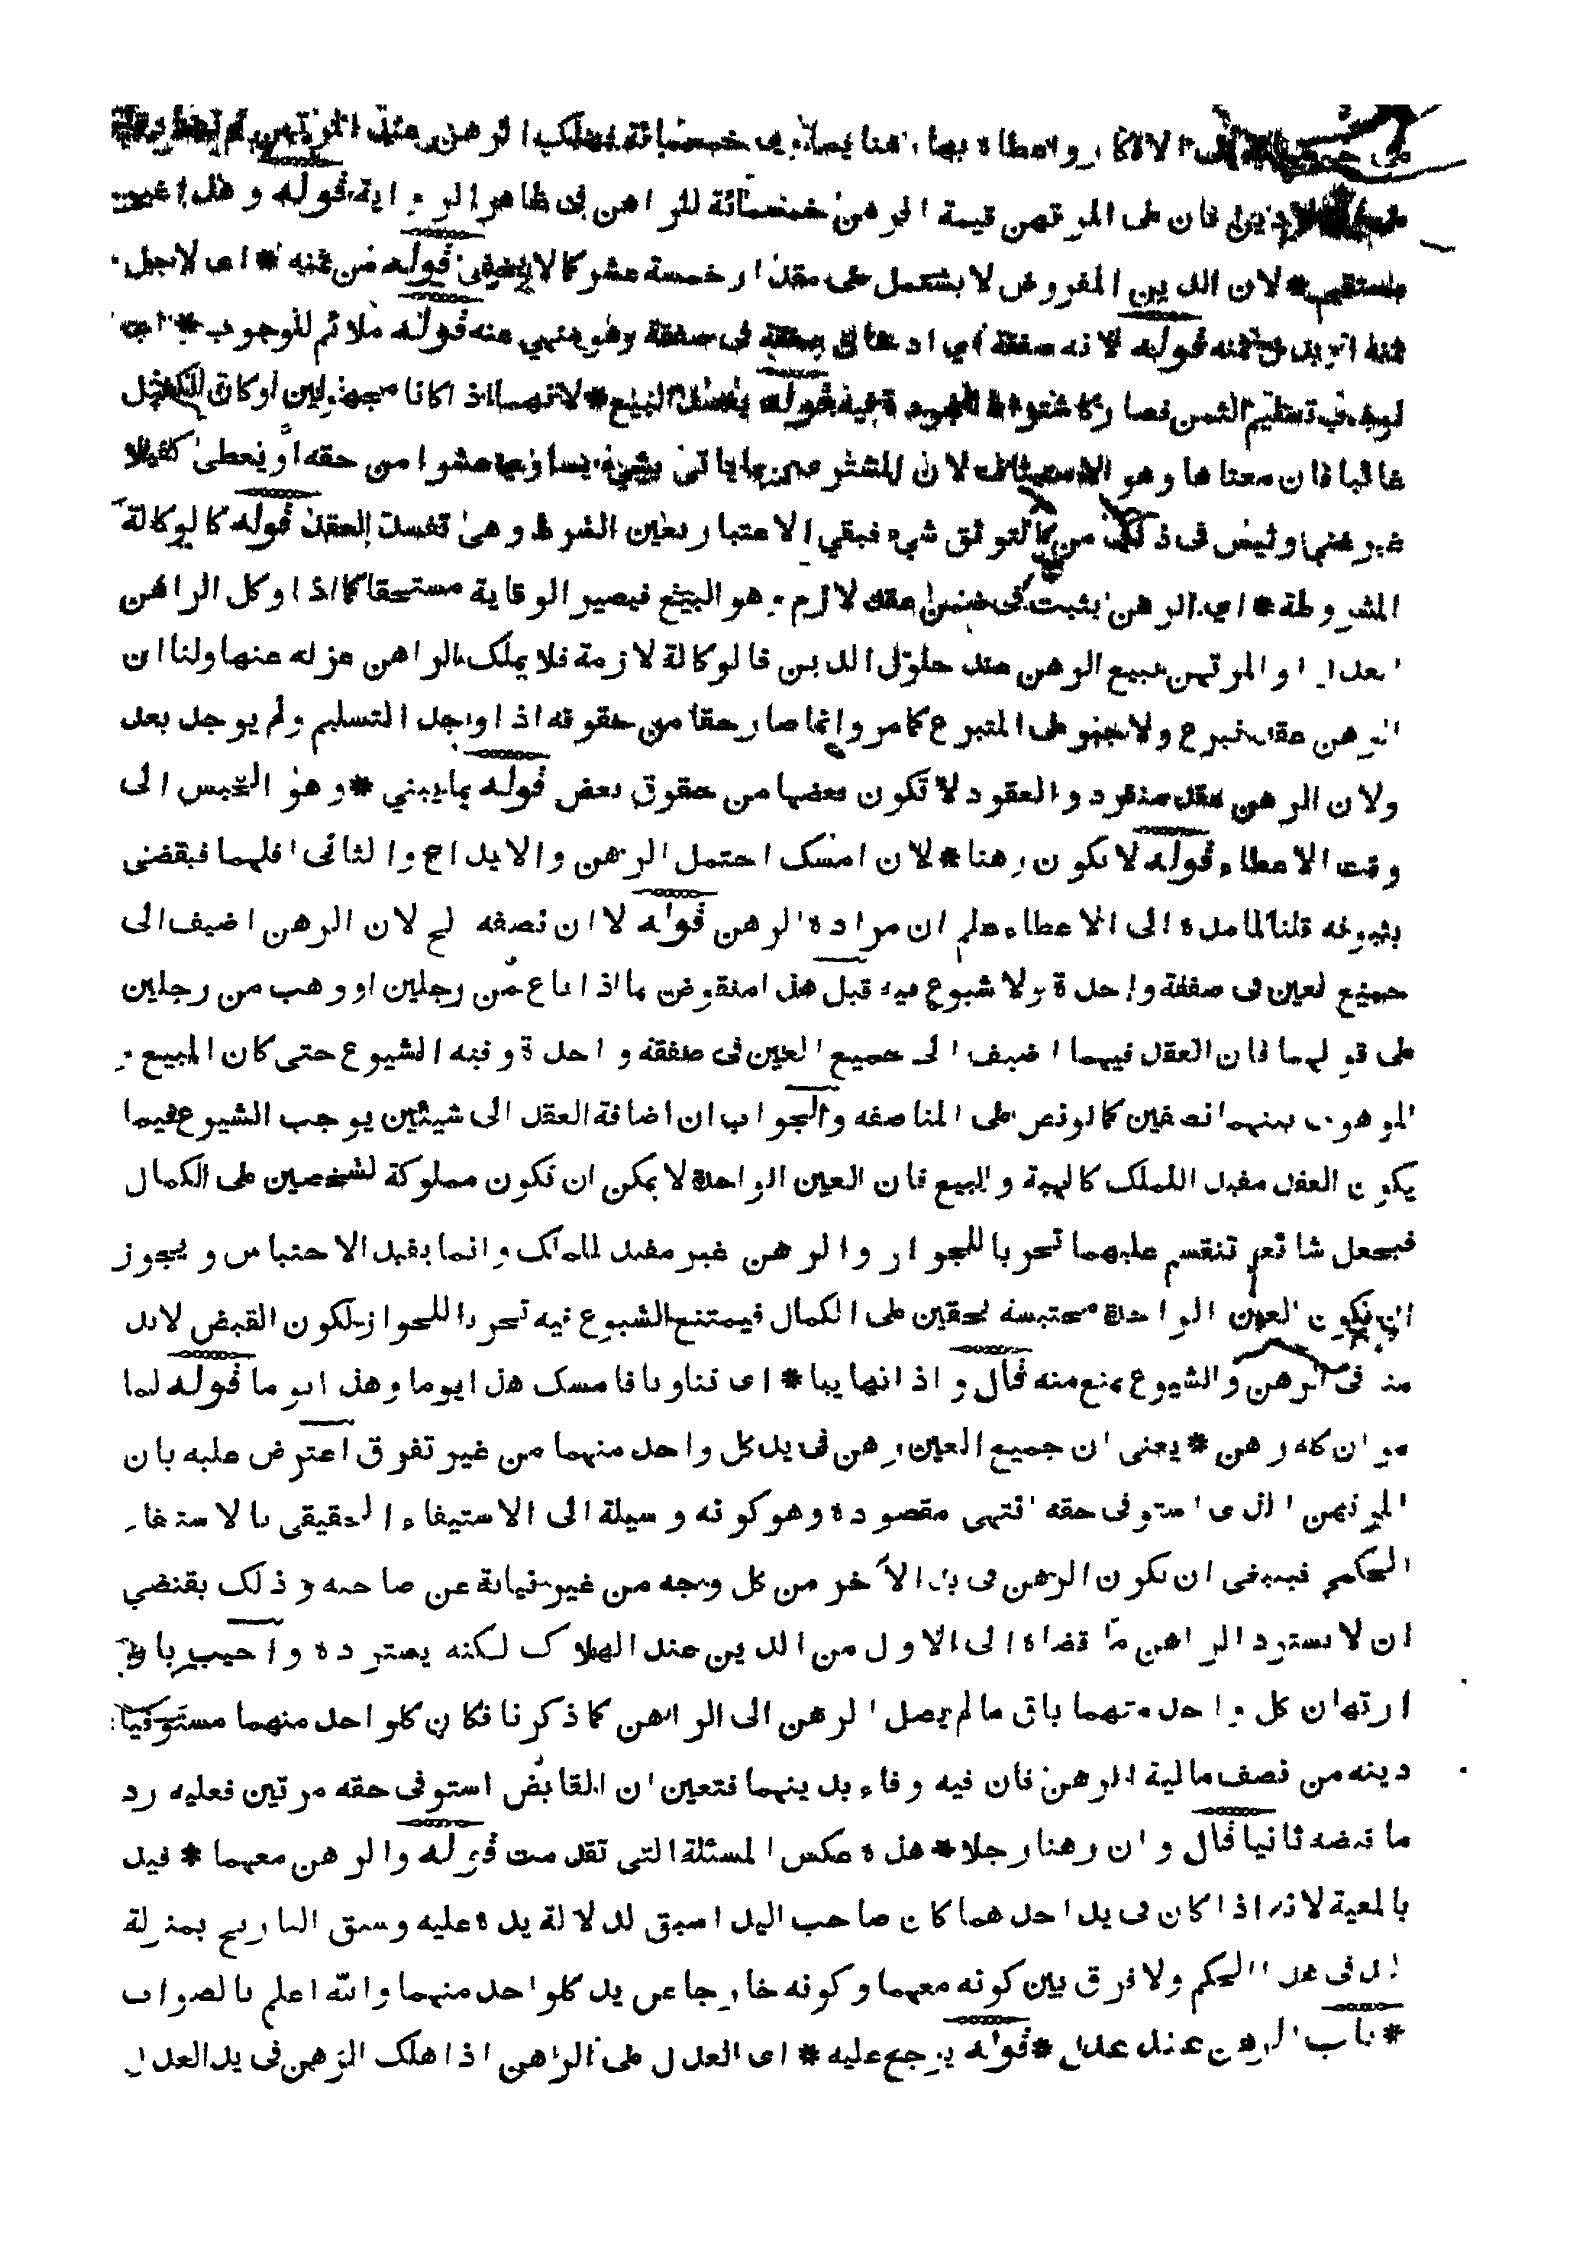 الاداء واعطاه بها رهنا يساوي خمسمائة فهلك الرهن عند المرتهن
الدين فان على المرتهن قيمة الرهن خمسمائة للراهن في ظاهر الرواية قوله وهذا غير
مستقيم * لان الدين المفروض لا يشتمل على مقدار خمسة عشر كما لا يخفى قوله من ثمنه * اى لاجل
ثمنه قوله لانه صفقة اي ادخال صفقة في صفقة وهو منهي عنه قوله ملائم للوجوب * اى
لوجوب تسليم الثمن فصار كاشتراط الجودة فيه قوله يفسد البيع * لانهما اذا كانا مجهولين او كان الكفيل
غائبا فان معناها وهو الاستيثاق لان المشتري ربما ياتى بشيء يساوي عشرا من حقه او يعطى كفيلا
غير غني وليس في ذلك من التوثق شيء فبقي الاعتبار لعين الشرط وهى تفسد العقد قوله كالوكالة
المشروطة * اى الرهن يثبت في ضمن عقد لازم وهو البيع فيصير الوقاية مستحقا كما اذا وكل الراهن
العدل او المرتهن ببيع الرهن عند حلول الدين فالوكالة لازمة فلا يملك الراهن عزله عنها ولنا ان
الرهن عقد تبرع ولا جبر على المتبرع كما مر وانما صار حقا من حقوقه اذا وجد التسليم ولم يوجد بعد
ولان الرهن عقد منفرد والعقود لا تكون بعضها من حقوق بعض قوله بما يبني * وهو الحبس الى
وقت الاعطاء قوله لا يكون رهنا * لان امسك احتمل الرهن والايداع والثانى اقلهما فيقضى
بثبوته قلنا لما مده الى الاعطاء علم ان مراده الرهن قوله لا ان نصفه لخ لان الرهن اضيف الى
جميع العين في صفقة واحدة ولا شيوع فيه قيل هذا منقوض بما اذا باع من رجلين او وهب من رجلين
على قولهما فان العقد فيهما اضيف الى جميع العين في صفقة واحدة وفيه الشيوع حتى كان المبيع و
الموهوب بينهما نصفين كما لو نص على المناصفه والجواب ان اضافة العقد الى شيئين يوجب الشيوع فيما
يكون العقد مفيد اللملك كالهبة والبيع فان العين الواحدة لا يمكن ان تكون مملوكة لشخصين على الكمال
فيجعل شائعا تنقسم عليهما تحريا للجواز والرهن غير مفيد للملك وانما يفيد الاحتباس ويجوز
ان تكون العين الواحدة محتبسة لحقين على الكمال فيمتنع الشيوع فيه تحريا للجواز لكون القبض لابد
منه في الرهن والشيوع يمنع منه قال واذا تهايبا * اى تناوبا فامسك هذا يوما وهذا يوما قوله لما
مر ان كله رهن * يعنى ان جميع العين رهن في يد كل واحد منهما من غير تفرق اعترض عليه بان
المرتهن الذى استوفى حقه انتهى مقصوده وهو كونه وسيلة الى الاستيفاء الحقيقى بالاستيفاء
الحكمي فينبغى ان يكون الرهن في يد الآخر من كل وجه من غير نيابة عن صاحبه وذلك يقتضي
ان لا يسترد الراهن ما قضاه الى الاول من الدين عند الهلاك لكنه يسترده واجيب بان
ارتهان كل واحد منهما باق مالم يصل الرهن الى الراهن كما ذكرنا فكان كلواحد منهما مستوفيا
دينه من نصف مالية الرهن فان فيه وفاء بدينهما فتعين ان القابض استوفى حقه مرتين فعليه رد
ما قبضه ثانيا قال وان رهنا رجلا * هذه عكس المسئلة التى تقدمت قوله والرهن معهما * قيد
بالمعية لانه اذا كان في يد احدهما كان صاحب اليد اسبق لدلالة يده عليه وسبق التاريخ بمنزلة
اليد في هذا الحكم ولا فرق بين كونه معهما وكونه خارجا عن يد كلواحد منهما والله اعلم بالصواب
* باب الرهن عند عدل * قوله يرجع عليه * اى العدل على الراهن اذا هلك الرهن في يد العدل